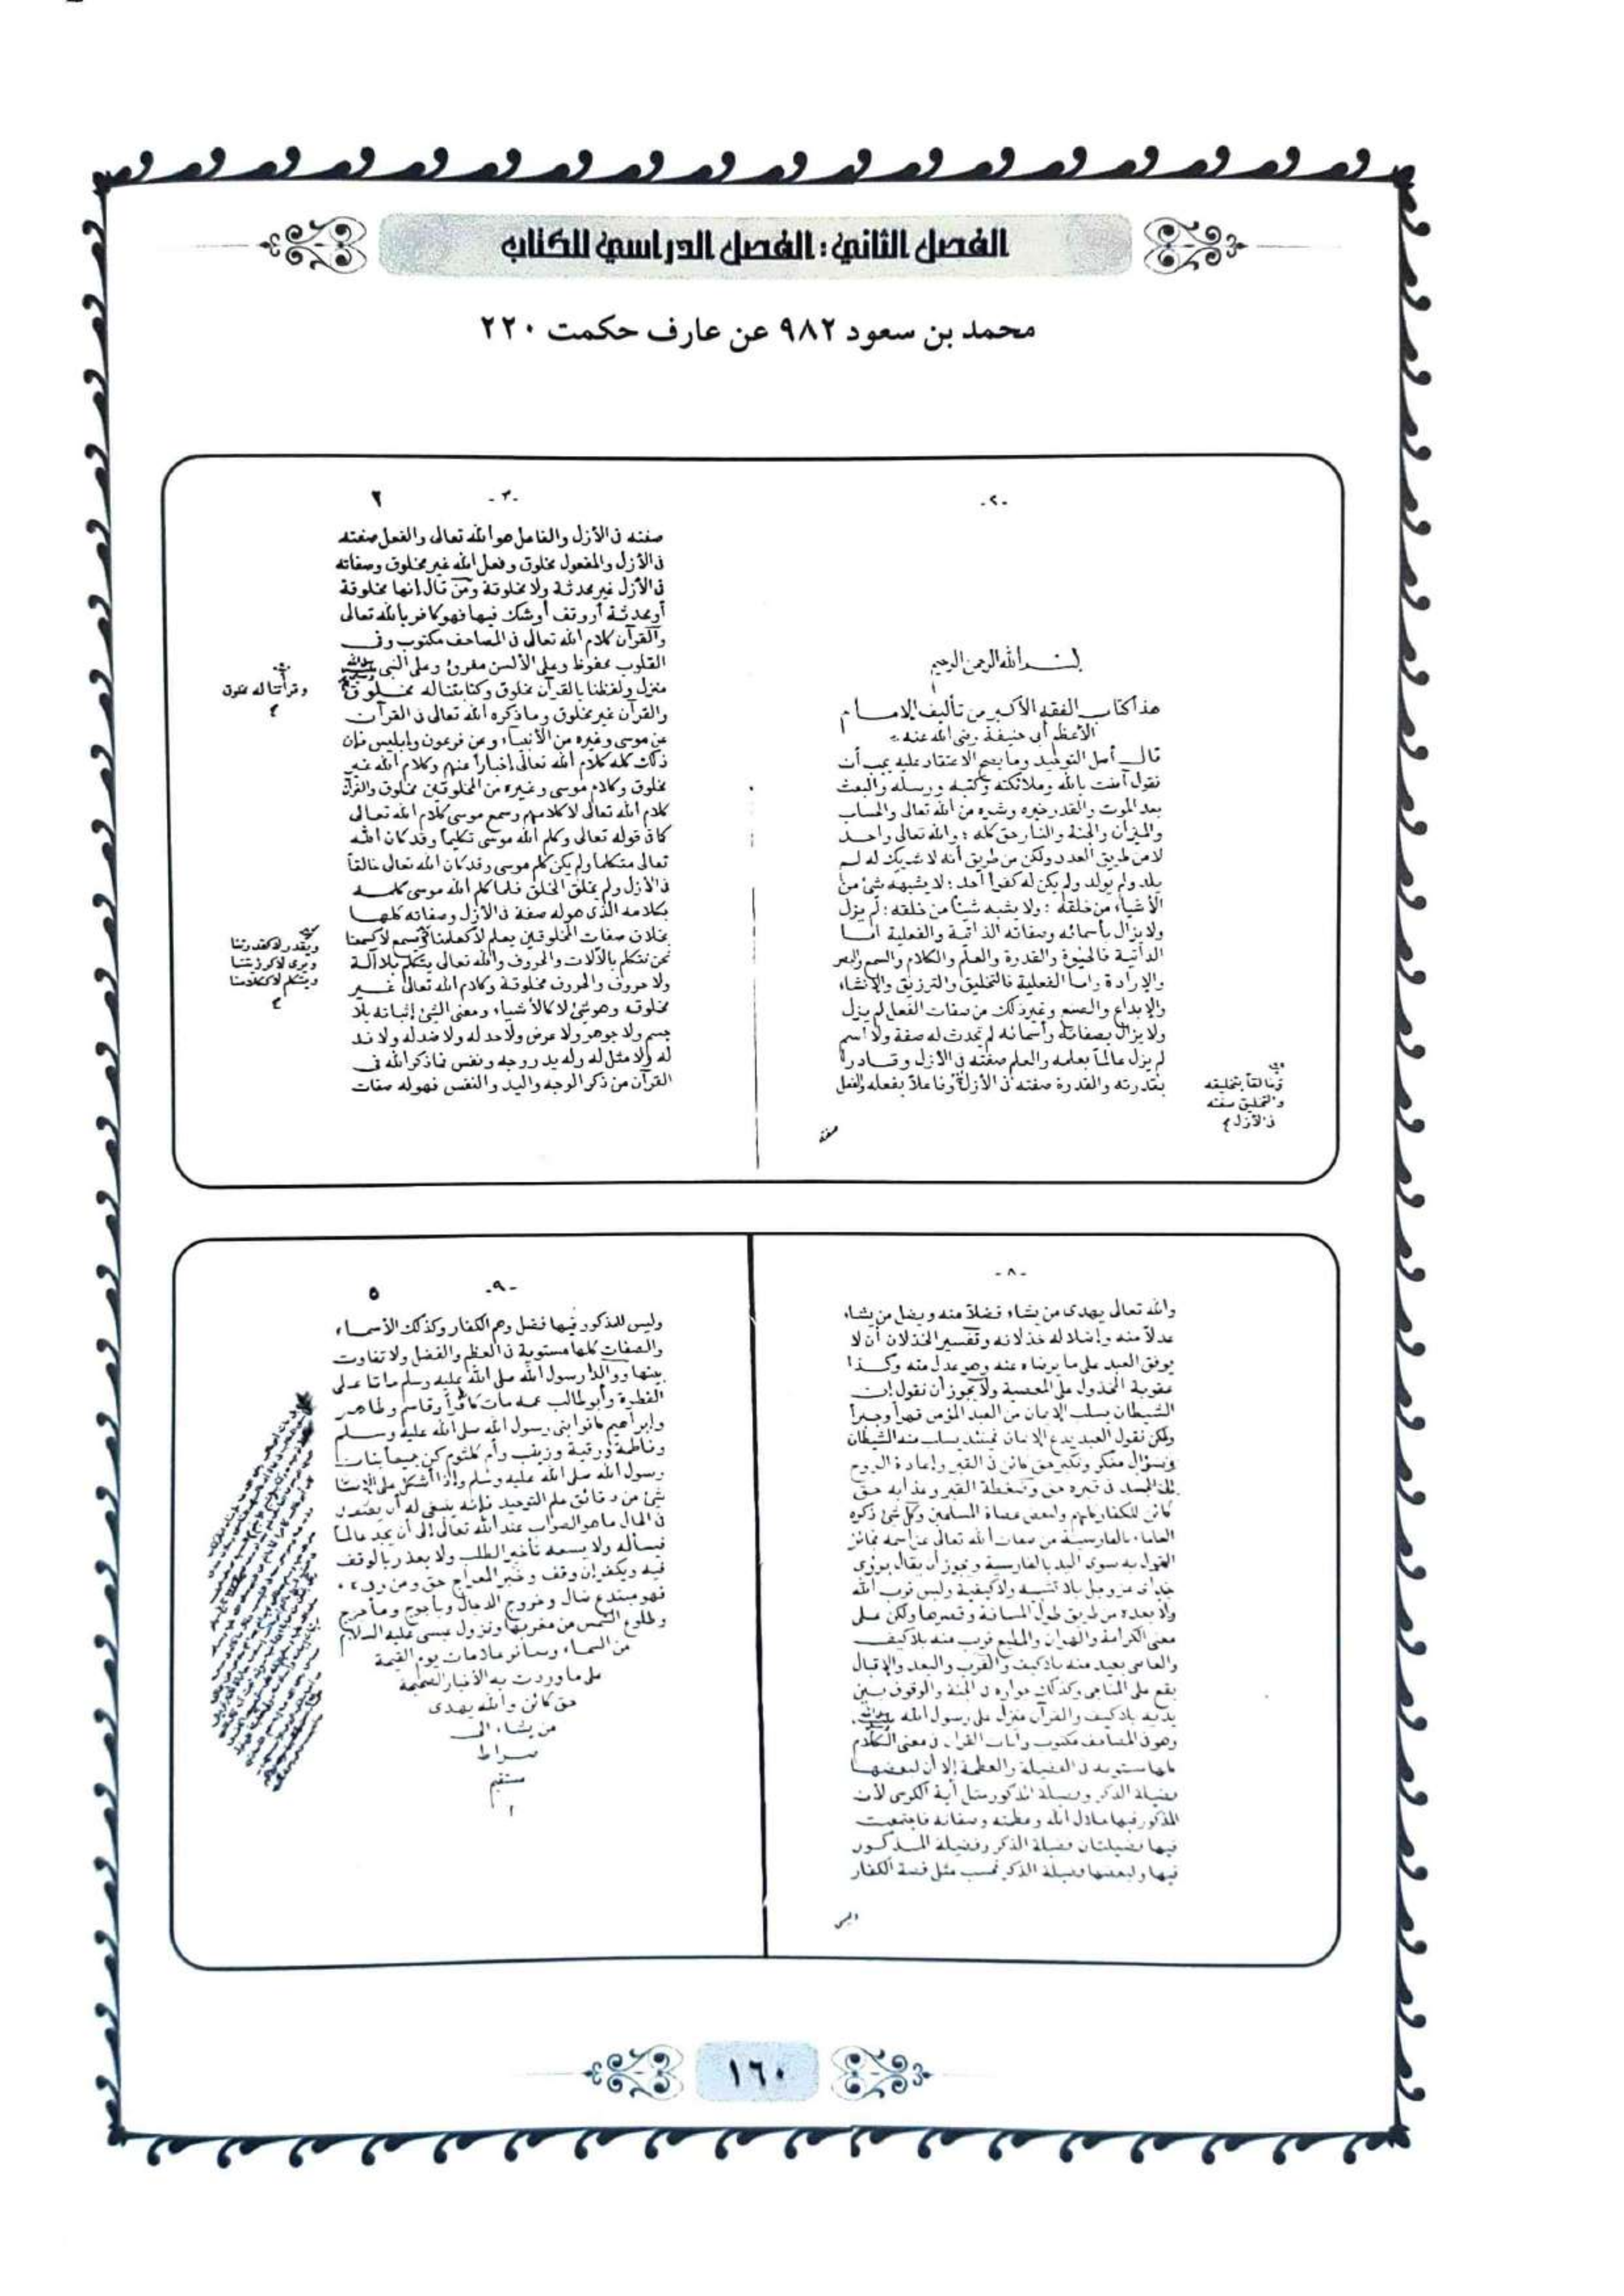 الفصل الثاني: الفصل الدراسي للكتاب
محمد بن سعود ٩٨٢ عن عارف حكمت ٢٢٠
-٢-
بسم الله الرحمن الرحيم
هذا كتاب الفقه الأكبر من تأليف الإمام
الأعظم أبي حنيفة رضى الله عنه
قال أصل التوحيد وما يصح الاعتقاد عليه يجب أن
نقول آمنت بالله وملائكته وكتبه ورسله والبعث
بعد الموت والقدر خيره وشره من الله تعالى والحساب
والميزان والجنة والنار حق كله : والله تعالى واحد
لا من طريق العدد ولكن من طريق أنه لا شريك له لم
يلد ولم يولد ولم يكن له كفوا أحد : لا يشبهه شئ من
الأشياء من خلقه : ولا يشبه شيئا من خلقه : لم يزل
ولا يزال بأسمائه وصفاته الذاتية والفعلية أما
الذاتية فالحيوة والقدرة والعلم والكلام والسمع والبصر
والإرادة وأما الفعلية فالتخليق والترزيق والإنشاء
والإبداع والصنع وغير ذلك من صفات الفعل لم يزل
ولا يزال بصفاته وأسمائه لم يحدث له صفة ولا اسم
لم يزل عالماً بعلمه والعلم صفته في الأزل وقادرا
بقدرته والقدرة صفته في الأزل وفاعلاً بفعله والفعل
وخالقاً بتخليقه
والتخليق صفته
في الأزل
صفته
-٣- ٢
صفته في الأزل والفاعل هو الله تعالى والفعل صفته
في الأزل والمفعول مخلوق وفعل الله غير مخلوق وصفاته
في الأزل غير محدثة ولا مخلوقة ومن قال انها مخلوقة
أو محدثة أو وقف أو شك فيها فهو كافر بالله تعالى
والقرآن كلام الله تعالى في المصاحف مكتوب وفي
القلوب محفوظ وعلى الألسن مقروء وعلى النبي
منزل ولفظنا بالقرآن مخلوق وكتابتنا له مخلوق
والقرآن غير مخلوق وما ذكره الله تعالى في القرآن
عن موسى وغيره من الأنبياء وعن فرعون وإبليس فإن
ذلك كله كلام الله تعالى إخباراً عنهم وكلام الله غير
مخلوق وكلام موسى وغيره من المخلوقين مخلوق والقرآن
كلام الله تعالى لا كلامهم وسمع موسى كلام الله تعالى
كما في قوله تعالى وكلم الله موسى تكليماً وقد كان الله
تعالى متكلما ولم يكن كلم موسى وقد كان الله تعالى خالقاً
في الأزل ولم يخلق الخلق فلما كلم الله موسى كلمه
بكلامه الذي هو له صفة في الأزل وصفاته كلها
بخلاف صفات المخلوقين يعلم لا كعلمنا ويسمع لا كسمعنا
نحن نتكلم بالآلات والحروف والله تعالى يتكلم بلا آلة
ولا حروف والحروف مخلوقة وكلام الله تعالى غير
مخلوقه وهو شئ لا كالأشياء ومعنى الشئ إثباته بلا
جسم ولا جوهر ولا عرض ولا حد له ولا ضد له ولا ند
له ولا مثل له وله يد ووجه ونفس فما ذكر الله في
القرآن من ذكر الوجه واليد والنفس فهو له صفات
وقرأتنا له مخلوق
ويقدر لا كقدرتنا
ويرى لا كرؤيتنا
ويتكلم لا ككلامنا
-٨-
والله تعالى يهدى من يشاء فضلاً منه ويضل من يشاء
عدلاً منه وإضلاله خذلانه وتفسير الخذلان أن لا
يوفق العبد على ما يرضاه عنه وهو عدل منه وكذا
عقوبة المخذول على المعصية ولا يجوز أن نقول إن
الشيطان يسلب الإيمان من العبد المؤمن قهراً وجبراً
ولكن نقول العبد يدع الإيمان فحينئذ يسلب منه الشيطان
وسؤال منكر ونكير حق كائن في القبر وإعادة الروح
إلى الجسد في قبره حق وضغطة القبر وعذابه حق
كائن للكفار كلهم ولبعض عصاة المسلمين وكل شئ ذكره
العلماء بالفارسية من صفات الله تعالى عز اسمه فجائز
القول به سوى اليد بالفارسية ويجوز أن يقال بروى
خداى عز وجل بلا تشبيه ولا كيفية وليس قرب الله
ولا بعده من طريق طول المسافة وقصرها ولكن على
معنى الكرامة والهوان والمطيع قريب منه بلا كيف
والعاصى بعيد منه بلا كيف والقرب والبعد والإقبال
يقع على المناجى وكذلك جواره في الجنة والوقوف بين
يديه بلا كيف والقرآن منزل على رسول الله
وهو في المصاحف مكتوب وآيات القرآن في معنى الكلام
كلها مستوية في الفضيلة والعظمة إلا أن لبعضها
فضيلة الذكر وفضيلة المذكور مثل آية الكرسى لأن
المذكور فيها جلال الله وعظمته وصفاته فاجتمعت
فيها فضيلتان فضيلة الذكر وفضيلة المذكور
فيها ولبعضها فضيلة الذكر فحسب مثل قصة الكفار
وليس
-٩- ٥
وليس للمذكور فيها فضل وهم الكفار وكذلك الأسماء
والصفات كلها مستوية في العظم والفضل ولا تفاوت
بينها ووالدا رسول الله صلى الله عليه وسلم ماتا على
الفطرة وأبو طالب عمه مات كافراً وقاسم وطاهر
وإبراهيم كانوا بنى رسول الله صلى الله عليه وسلم
وفاطمة ورقية وزينب وأم كلثوم كن جميعاً بنات
رسول الله صلى الله عليه وسلم وإذا أشكل على الإنسان
شئ من دقائق علم التوحيد فإنه ينبغى له أن يعتقد
في الحال ما هو الصواب عند الله تعالى إلى أن يجد عالماً
فيسأله ولا يسعه تأخير الطلب ولا يعذر بالوقف
فيه ويكفر إن وقف وخبر المعراج حق ومن رده
فهو مبتدع ضال وخروج الدجال ويأجوج ومأجوج
وطلوع الشمس من مغربها ونزول عيسى عليه السلام
من السماء وسائر علامات يوم القيمة
على ما وردت به الأخبار الصحيحة
حق كائن والله يهدى
من يشاء الى
صراط
مستقيم
١٦٠